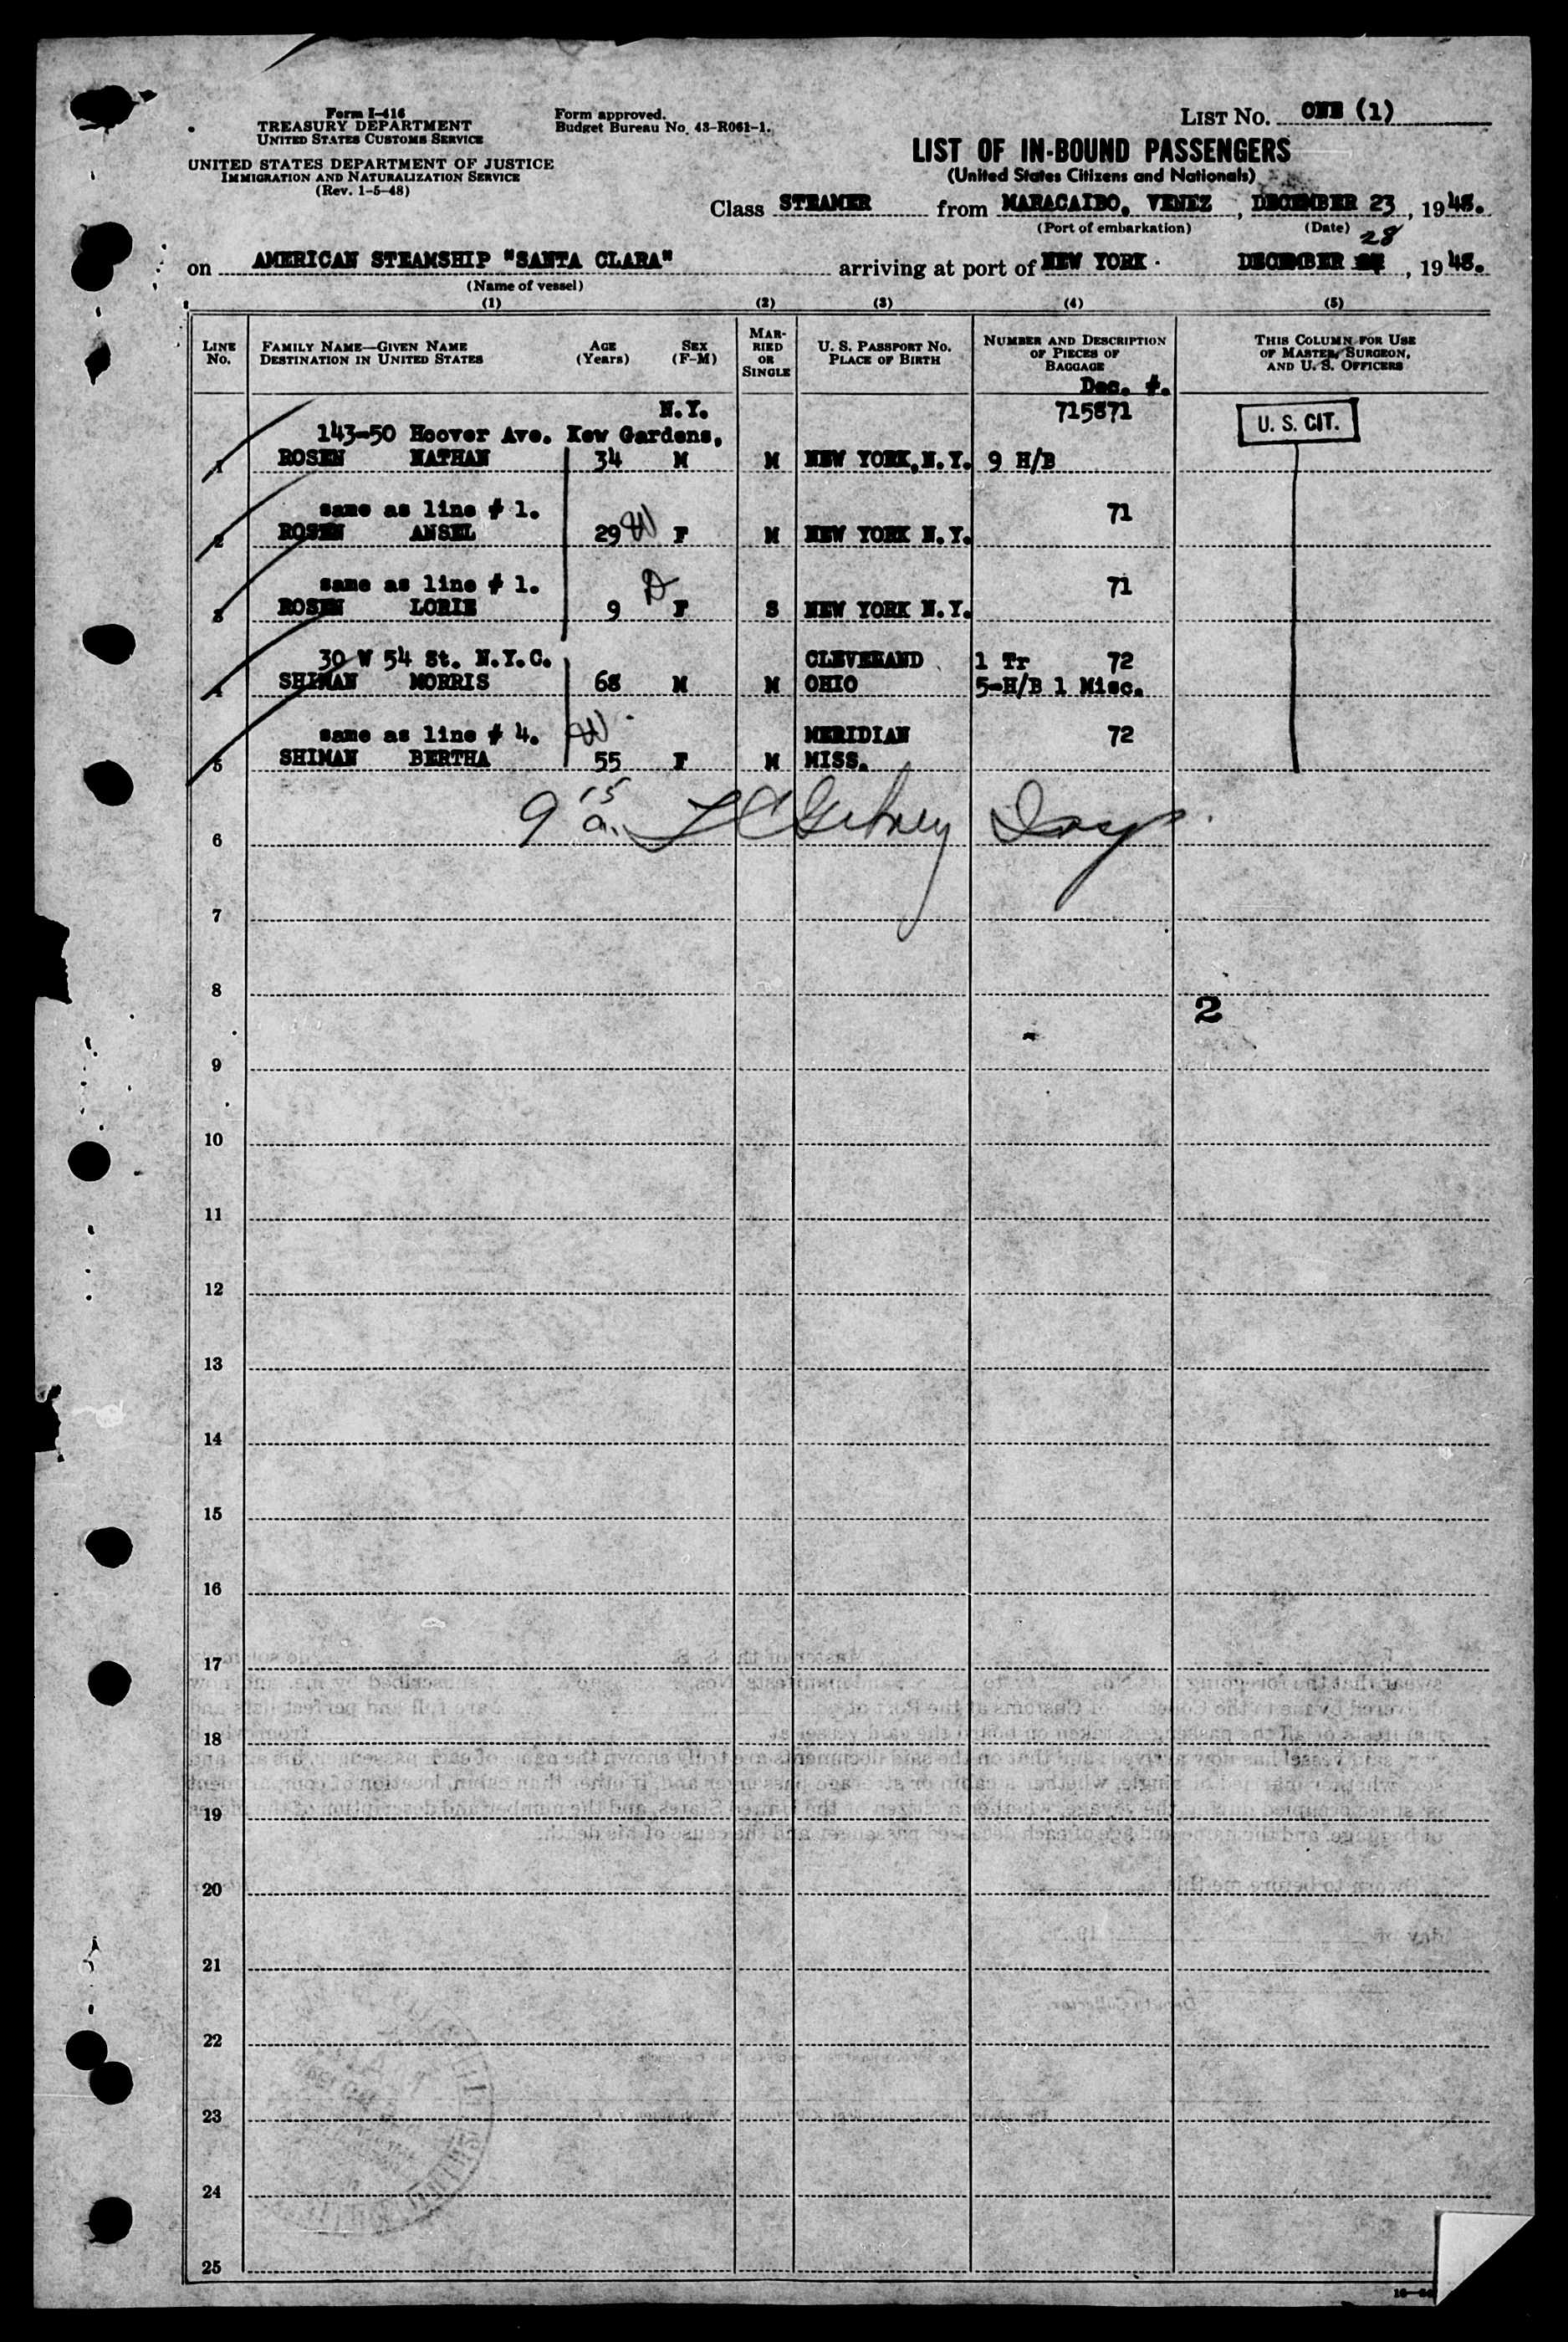 Form I-416
TREASURY DEPARTMENT
UNITED STATES CUSTOMS SERVICE
UNITED STATES DEPARTMENT OF JUSTICE
IMMIGRATION AND NATURALIZATION SERVICE
(Rev. 1-5-48)
Form approved.
Budget Bureau No. 43-R061-1.
LIST NO. ONE (1)
LIST OF IN-BOUND PASSENGERS
(United States Citizens and Nationals)
Class STEAMER from MARACAIBO, VENEZ, DECEMBER 23, 1948.
(Port of embarkation) (Date)
28
on AMERICAN STEAMSHIP "SANTA CLARA" arriving at port of NEW YORK DECEMBER , 1948.
(Name of vessel)
(1) (2) (3) (4) (5)
LINE No. FAMILY NAME—GIVEN NAME DESTINATION IN UNITED STATES AGE (Years) SEX (F-M) MARRIED OR SINGLE U. S. PASSPORT NO. PLACE OF BIRTH NUMBER AND DESCRIPTION OF PIECES OF BAGGAGE THIS COLUMN FOR USE OF MASTER, SURGEON, AND U. S. OFFICERS
Dec. #.
N.Y. 715871
143-50 Hoover Ave. Kew Gardens, U. S. CIT.
1 ROSEN NATHAN 34 M M NEW YORK, N.Y. 9 H/B
same as line # 1. 71
2 ROSEN ANSEL 29 W F M NEW YORK N.Y.
same as line # 1. D 71
3 ROSEN LORIE 9 F S NEW YORK N.Y.
30 W 54 St. N.Y.C. CLEVEKAND 1 Tr 72
4 SHIMAN MORRIS 68 M M OHIO 5-H/B 1 Misc.
same as line # 4. W MERIDIAN 72
5 SHIMAN BERTHA 55 F M MISS.
9 15 a.
6
7
8
2
9
10
11
12
13
14
15
16
17
18
19
20
21
22
23
24
25